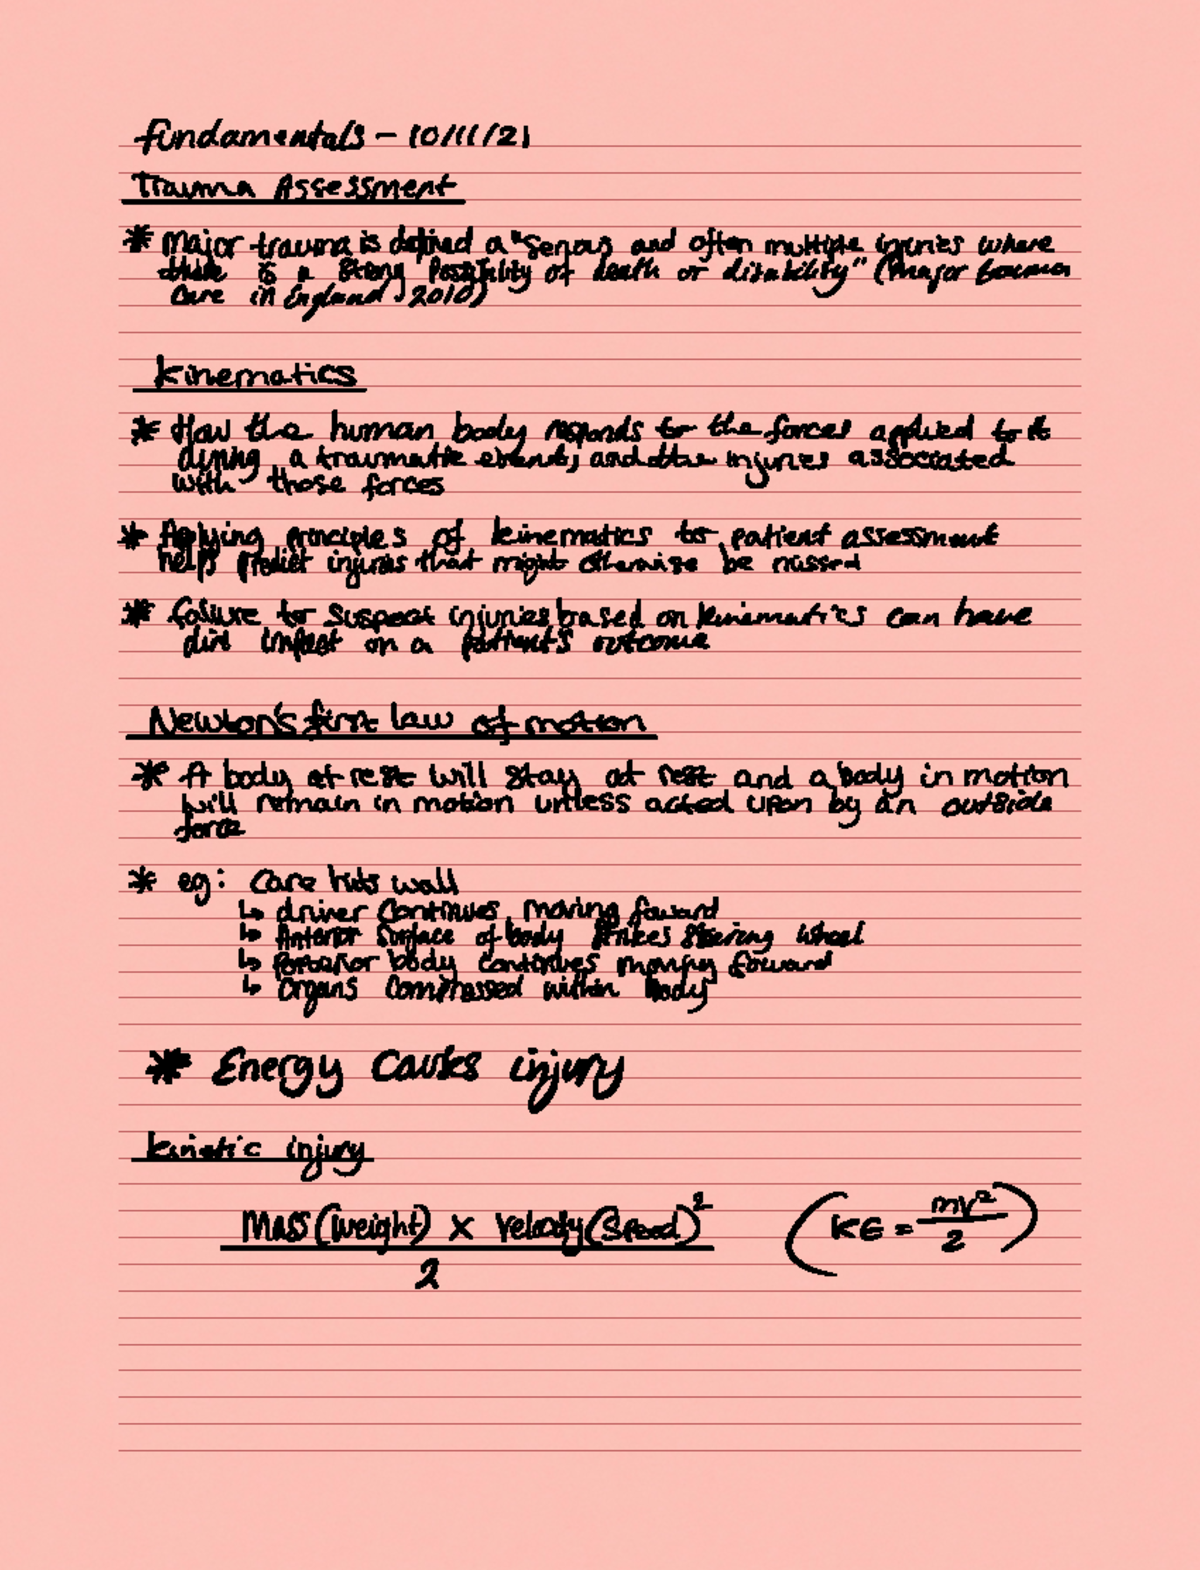 Fundamentals - 10/11/21
Trauma Assessment
* Major trauma is defined a "serious and often multiple injuries where
there is a strong possibility of death or disability" (Major trauma
Care in England, 2010)
Kinematics
* How the human body responds to the forces applied to it
during a traumatic event, and the injuries associated
with those forces
* Applying principles of kinematics to patient assessment
helps predict injuries that might otherwise be missed
* failure to suspect injuries based on kinematics can have
impact on a patient's outcome
Newton's first law of motion
* A body at rest will stay at rest and a body in motion
will remain in motion unless acted upon by an outside
force
* eg: Care hits wall
↳ driver continues moving foward
↳ Anterior surface of body strikes steering wheel
↳ Posterior body continues moving forward
↳ Organs compressed within body
* Energy causes injury
kinetic injury
Mass (weight) x Velocity (Speed)²
2
(KE = mv²
2)